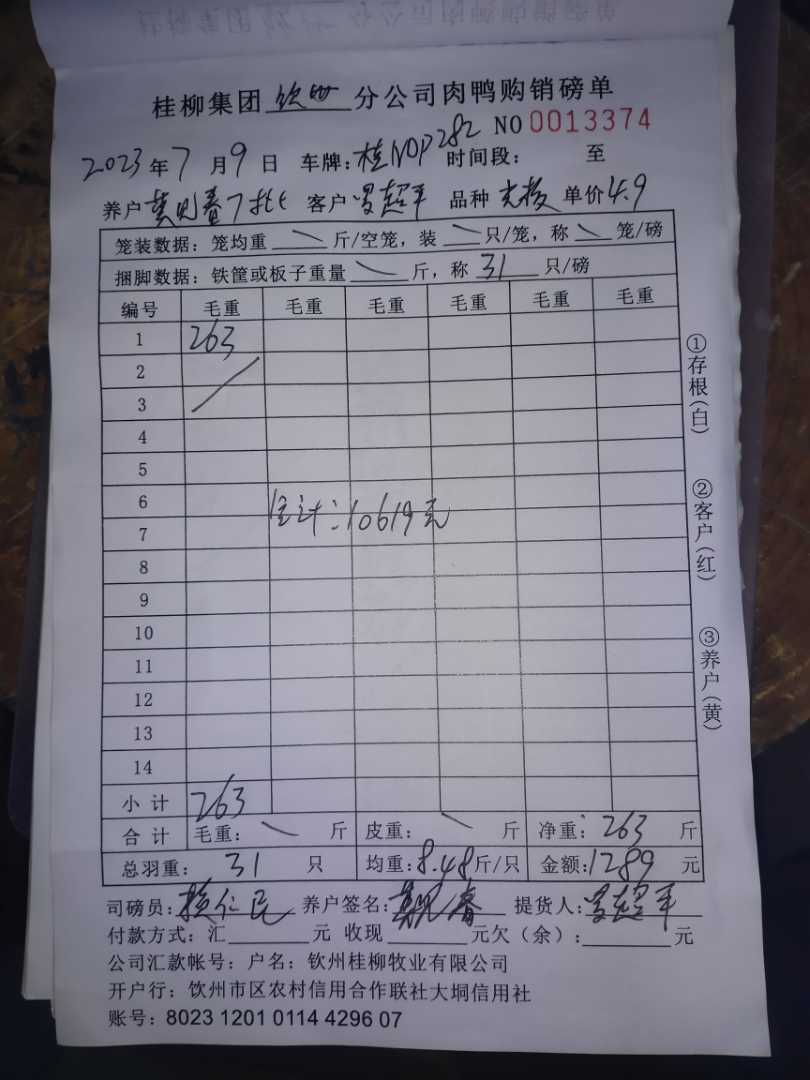 桂柳集团 钦州 分公司肉鸭购销磅单
NO 0013374
2023年7月9日 车牌:桂NOP282 时间段: 至
养户 客户 罗超平 品种 单价4.9
笼装数据: 笼均重 斤/空笼, 装 只/笼, 称 笼/磅
捆脚数据: 铁筐或板子重量 斤, 称 31 只/磅
编号 毛重 毛重 毛重 毛重 毛重 毛重
1 263
2
3
4
5
6
全计:10619元
7
8
9
10
11
12
13
14
小计 263
合计 毛重: 斤 皮重: 斤 净重: 263 斤
总羽重: 31 只 均重:8.48斤/只 金额:1289元
司磅员: 养户签名: 提货人:罗超平
付款方式: 汇 元 收现 元欠(余): 元
公司汇款帐号: 户名: 钦州桂柳牧业有限公司
开户行: 饮州市区农村信用合作联社大垌信用社
账号: 8023 1201 0114 4296 07
①存根(白)
②客户(红)
③养户(黄)